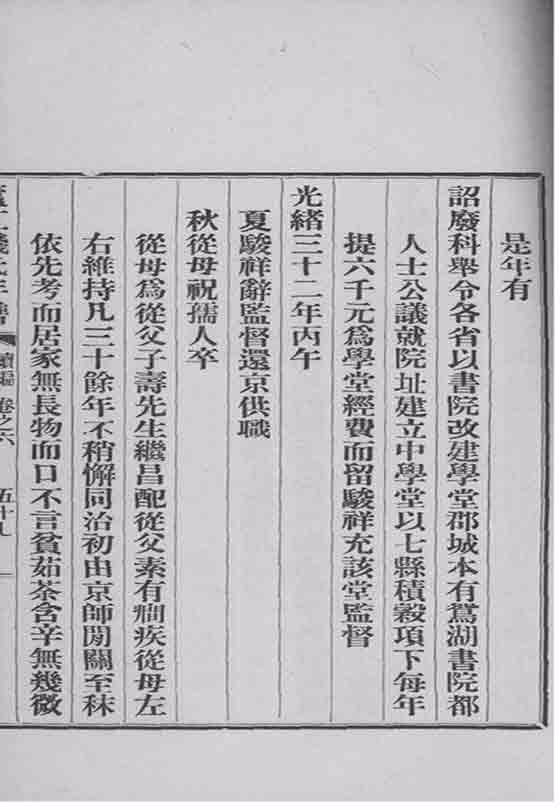 是年有
詔廢科舉令各省以書院改建學堂郡城本有鴛湖書院都
人士公議就院址建立中學堂以七縣積穀項下每年
提六千元爲學堂經費而留駿祥充該堂監督
光緒三十二年丙午
夏駿祥辭監督還京供職
秋從母祝孺人卒
從母爲從父子壽先生繼昌配從父素有癎疾從母左
右維持凡三十餘年不稍懈同治初由京師閒關至秣
依先考而居家無長物而口不言貧茹荼含辛無幾微
續編 卷之六